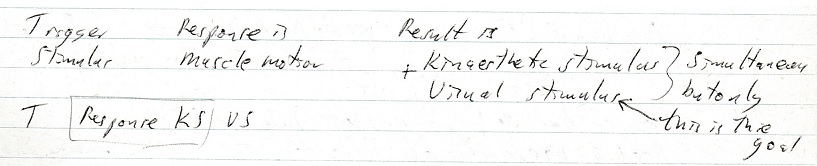 Trigger Response is Result is
Stimulus muscle motion + Kinaesthetic stimulus } Simultaneous
Visual stimulus but only
T Response KS VS this is the
goal